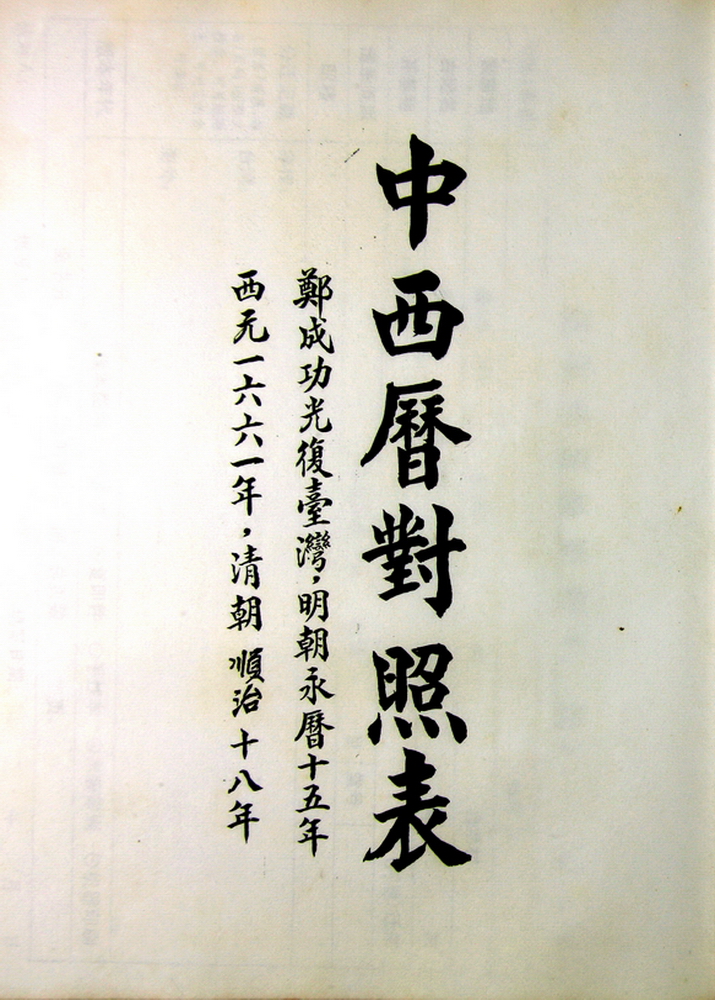 中西曆對照表
鄭成功光復臺灣，明朝永曆十五年
西元一六六一年，清朝順治十八年